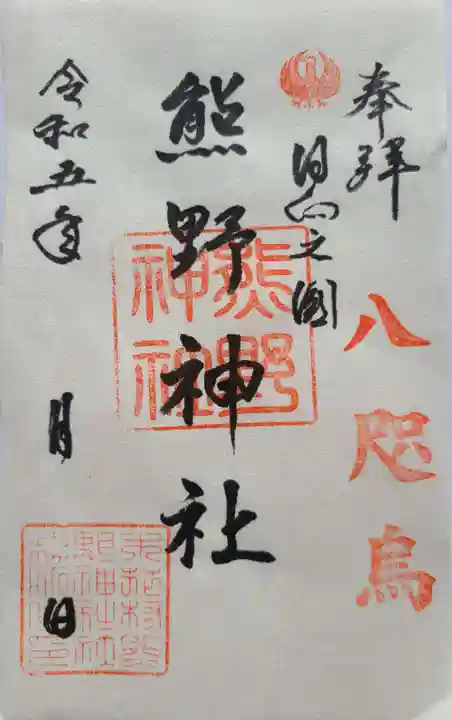 奉拝
八咫烏
日向之國
熊野神社
熊野神社
令和五年
月
日